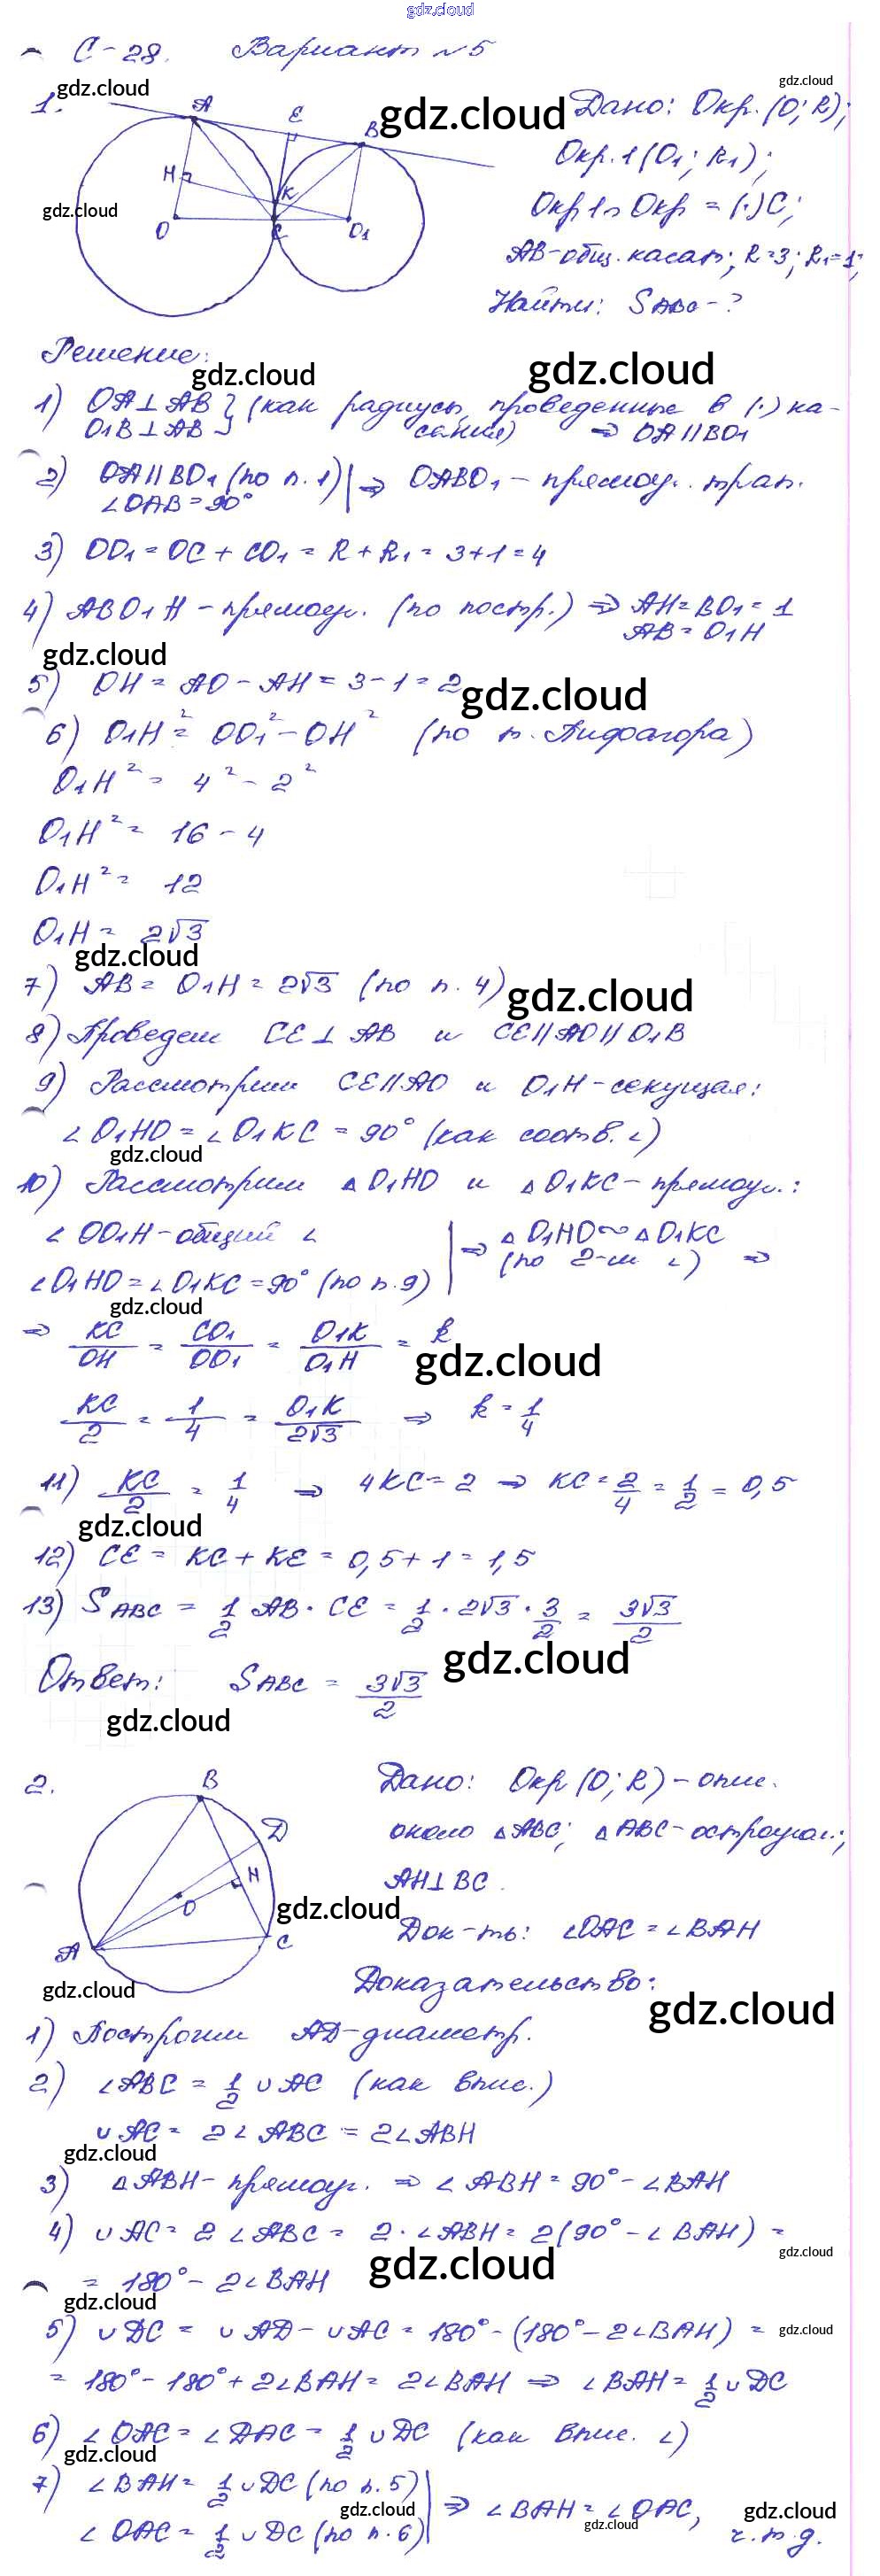 gdz.cloud
С-28. Вариант №5
gdz.cloud
1.
A E B H K O C O₁
gdz.cloud
gdz.cloud
gdz.cloud
Дано: Окр. (O; R);
Окр. 1 (O₁; R₁);
Окр 1 ∩ Окр = (·) C;
AB - общ. касат; R=3; R₁=1;
Найти: S ABC - ?
Решение:
gdz.cloud
gdz.cloud
1) OA ⊥ AB } (как радиусы, проведенные в (·) ка-
O₁B ⊥ AB } сания) ⇒ OA || BO₁
2) OA || BO₁ (по п. 1) | ⇒ OABO₁ - прямоуг. трап.
∠OAB = 90°
3) OO₁ = OC + CO₁ = R + R₁ = 3+1 = 4
4) ABO₁H - прямоуг. (по постр.) ⇒ AH = BO₁ = 1
AB = O₁H
gdz.cloud
5) OH = AO - AH = 3 - 1 = 2
gdz.cloud
6) O₁H² = OO₁² - OH² (по т. Пифагора)
O₁H² = 4² - 2²
O₁H² = 16 - 4
O₁H² = 12
O₁H = 2√3
gdz.cloud
7) AB = O₁H = 2√3 (по п. 4)
gdz.cloud
8) Проведем CE ⊥ AB и CE || AO || O₁B
9) Рассмотрим CE || AO и O₁H - секущая:
∠O₁HO = ∠O₁KC = 90° (как соотв. ∠)
gdz.cloud
10) Рассмотрим △O₁HO и △O₁KC - прямоуг.:
∠OO₁H - общий ∠ | ⇒ △O₁HO ∾ △O₁KC
∠O₁HO = ∠O₁KC = 90° (по п. 9) | (по 2-м ∠) ⇒
gdz.cloud
⇒ KC/OH = CO₁/OO₁ = O₁K/O₁H = k
gdz.cloud
KC/2 = 1/4 = O₁K/2√3 ⇒ k = 1/4
11) KC/2 = 1/4 ⇒ 4KC = 2 ⇒ KC = 2/4 = 1/2 = 0,5
gdz.cloud
12) CE = KC + KE = 0,5 + 1 = 1,5
13) S ABC = 1/2 AB · CE = 1/2 · 2√3 · 3/2 = 3√3/2
gdz.cloud
Ответ: S ABC = 3√3/2
gdz.cloud
2.
B D H O A C
gdz.cloud
gdz.cloud
Дано: Окр (O; R) - опис.
около △ABC; △ABC - остроугол.;
AH ⊥ BC.
Док-ть: ∠OAC = ∠BAH
Доказательство:
gdz.cloud
1) Построим AD - диаметр.
2) ∠ABC = 1/2 ∪ AC (как впис.)
∪ AC = 2∠ABC = 2∠ABH
gdz.cloud
3) △ABH - прямоуг. ⇒ ∠ABH = 90° - ∠BAH
4) ∪ AC = 2∠ABC = 2 · ∠ABH = 2(90° - ∠BAH) =
gdz.cloud
gdz.cloud
= 180° - 2∠BAH
gdz.cloud
5) ∪ DC = ∪ AD - ∪ AC = 180° - (180° - 2∠BAH) =
gdz.cloud
= 180° - 180° + 2∠BAH = 2∠BAH ⇒ ∠BAH = 1/2 ∪ DC
6) ∠OAC = ∠DAC = 1/2 ∪ DC (как впис. ∠)
gdz.cloud
7) ∠BAH = 1/2 ∪ DC (по п. 5) | ⇒ ∠BAH = ∠OAC,
gdz.cloud
gdz.cloud
gdz.cloud
∠OAC = 1/2 ∪ DC (по п. 6) | ч.т.д.